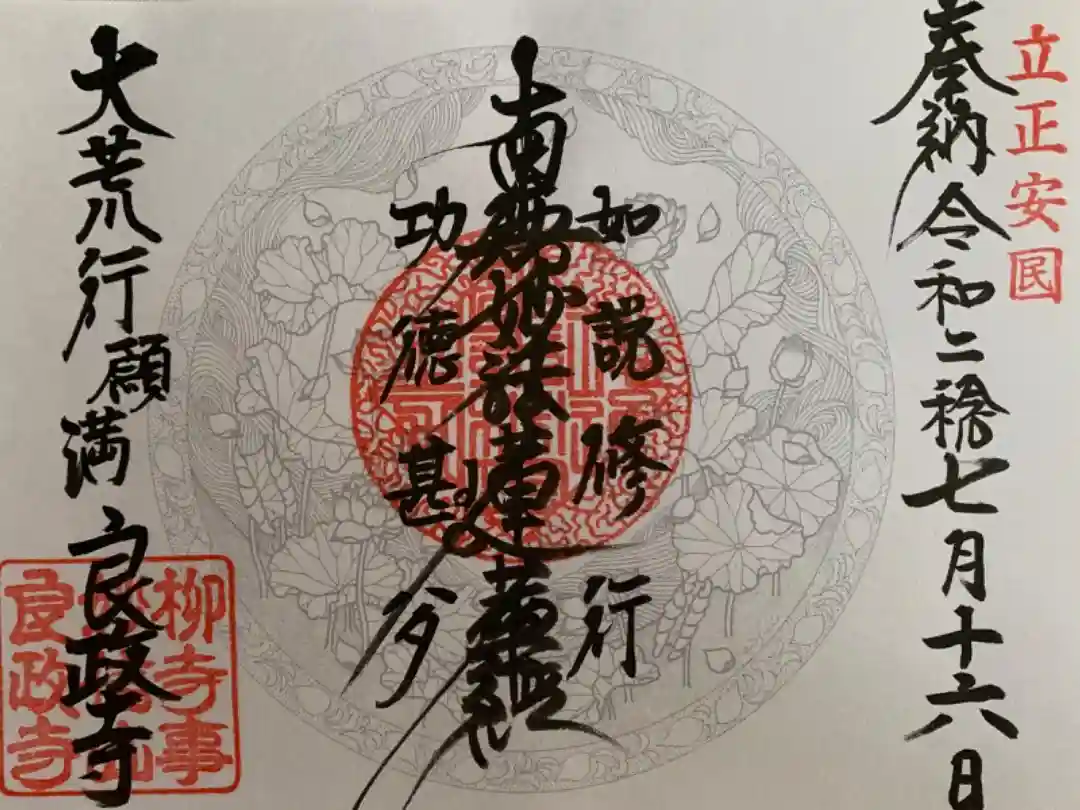 立正安民
奉納令和二稔七月十六日
如説修行
南無妙法蓮華経
功徳甚多
大荒行願満良政寺
柳寺事
良政寺